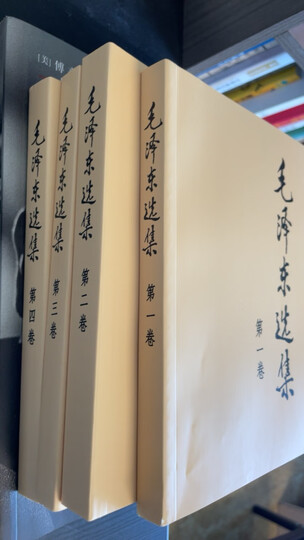 [美]傅
毛泽东选集
第四卷
毛泽东选集
第三卷
毛泽东选集
第二卷
毛泽东选集
第一卷
毛泽东选集
第一卷